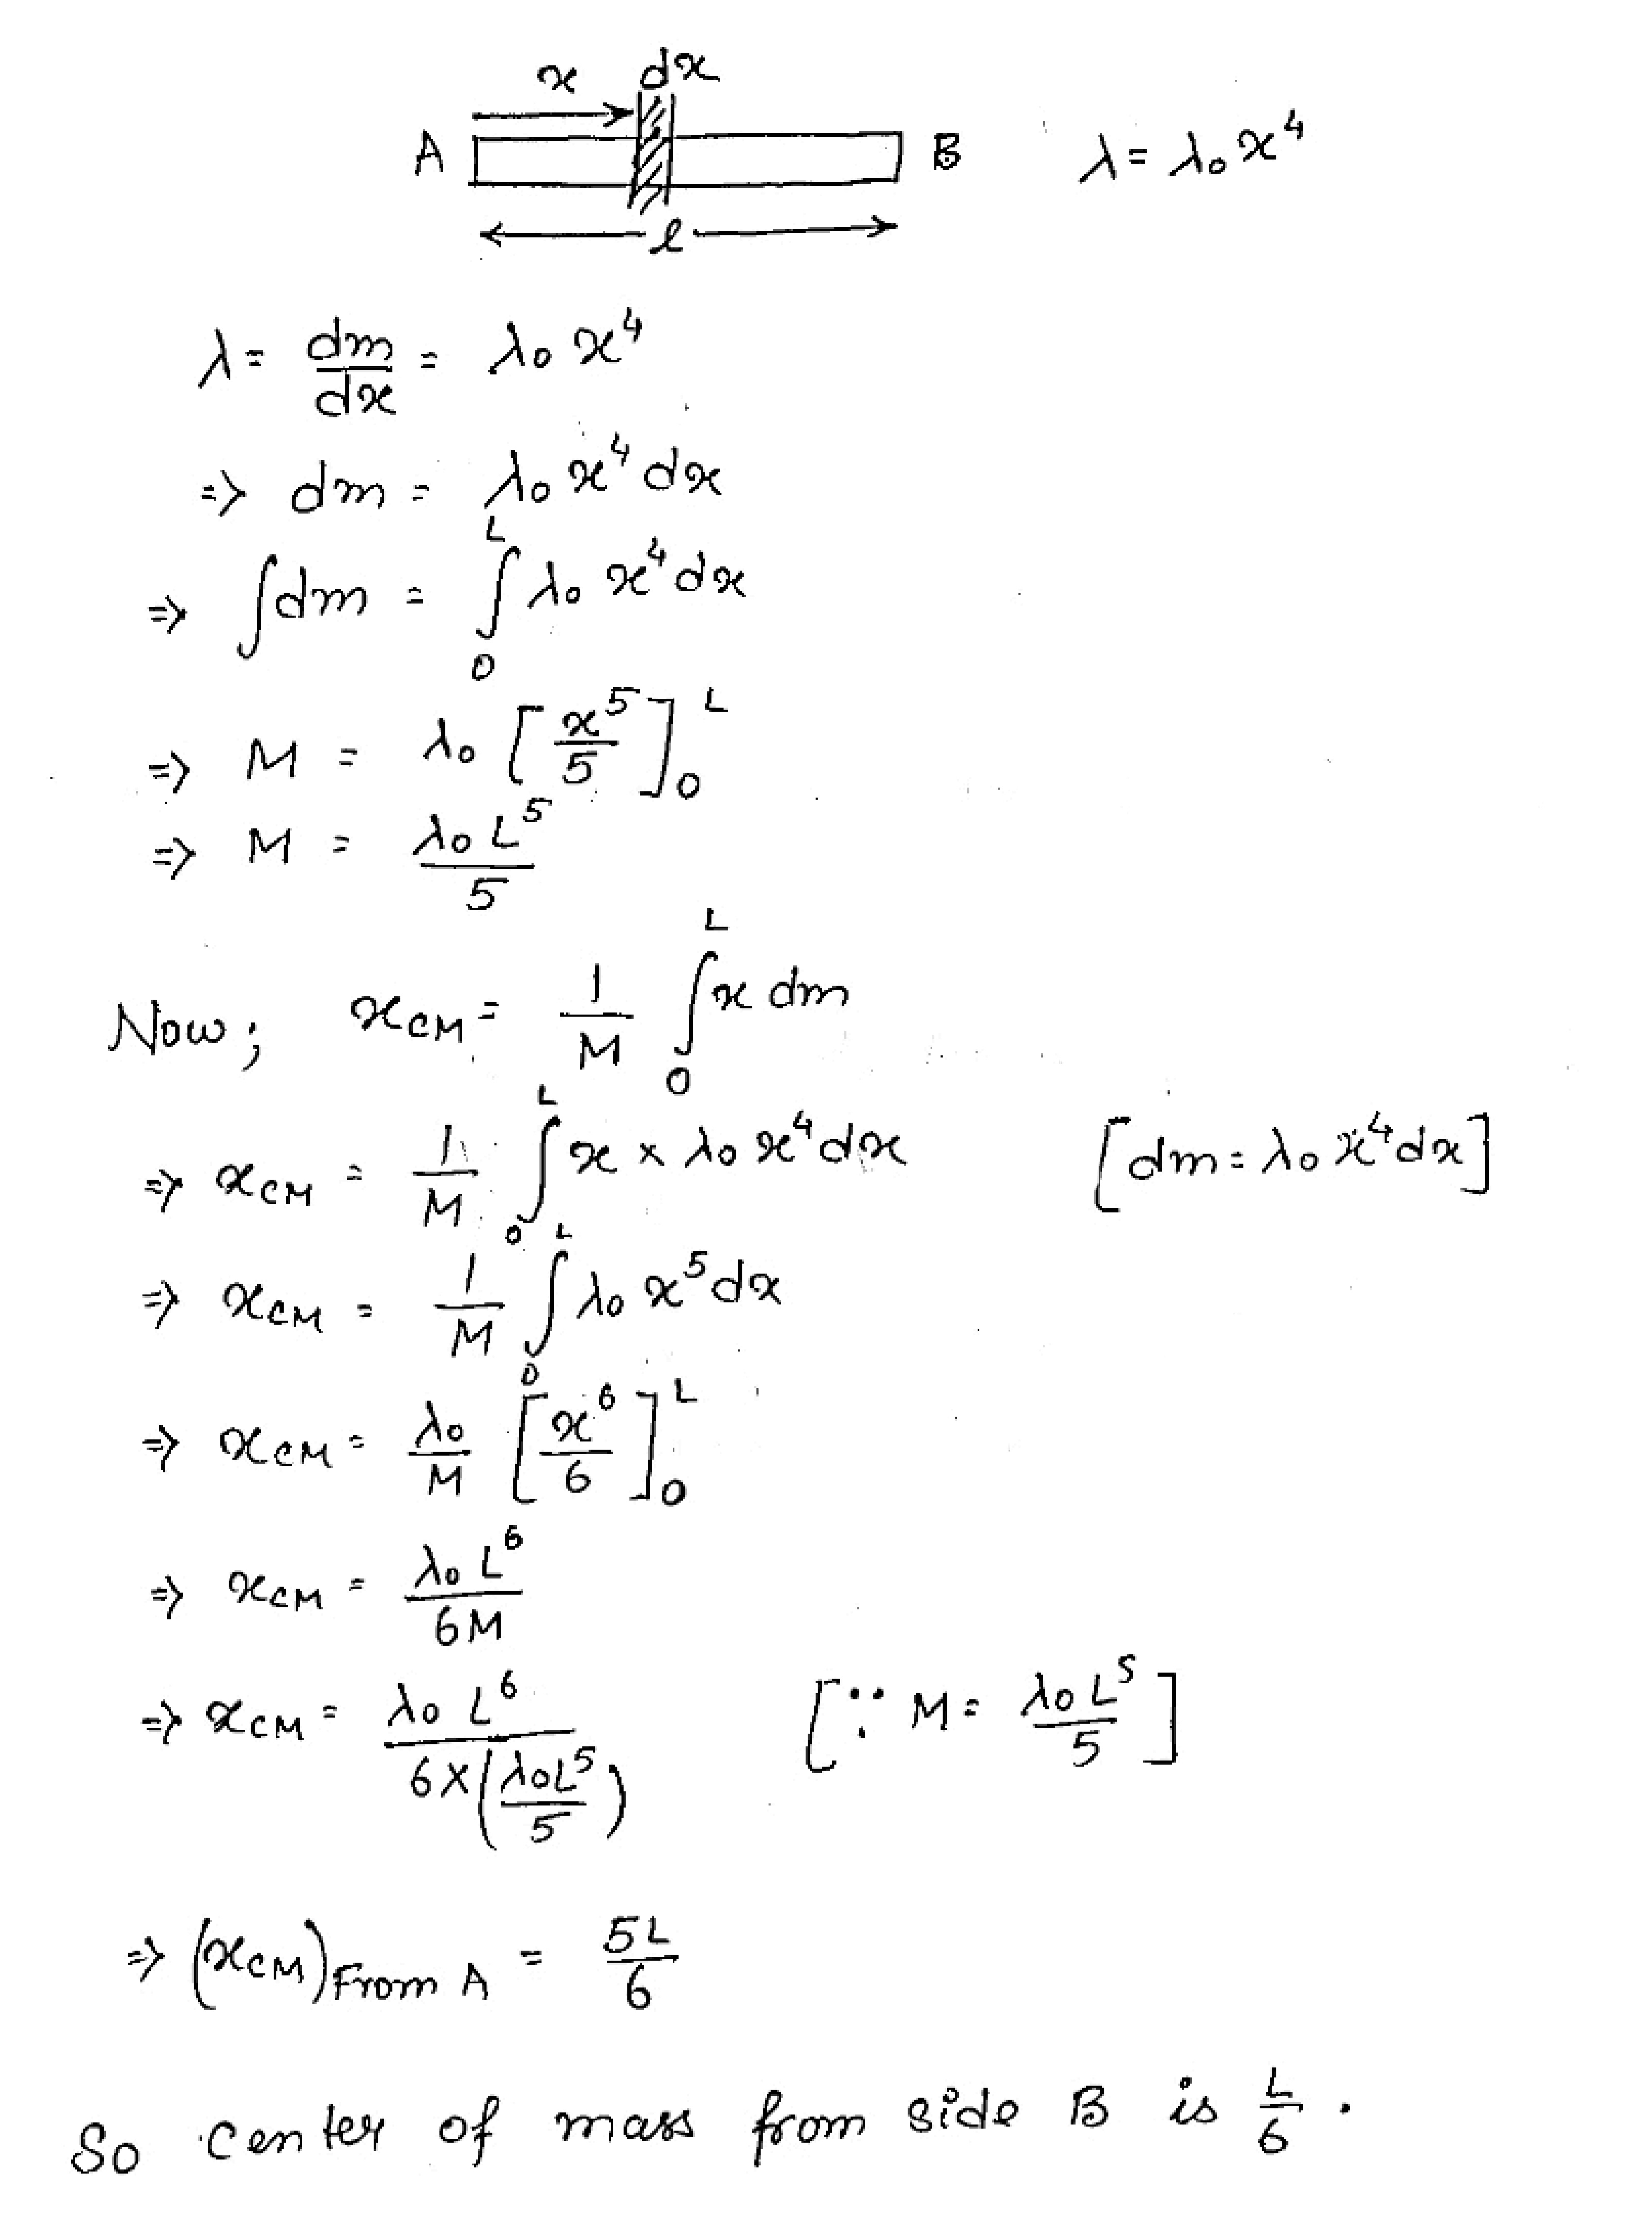 x dx
A B λ = λ₀x⁴
l
λ = dm/dx = λ₀x⁴
=> dm = λ₀x⁴dx
=> ∫dm = ∫₀ᴸ λ₀x⁴dx
=> M = λ₀[x⁵/5]₀ᴸ
=> M = λ₀L⁵/5
Now; x_CM = 1/M ∫₀ᴸ x dm
=> x_CM = 1/M ∫₀ᴸ x × λ₀x⁴dx [dm = λ₀x⁴dx]
=> x_CM = 1/M ∫₀ᴸ λ₀x⁵dx
=> x_CM = λ₀/M [x⁶/6]₀ᴸ
=> x_CM = λ₀L⁶/6M
=> x_CM = λ₀L⁶/6×(λ₀L⁵/5) [∵ M = λ₀L⁵/5]
=> (x_CM)From A = 5L/6
So center of mass from side B is L/6.